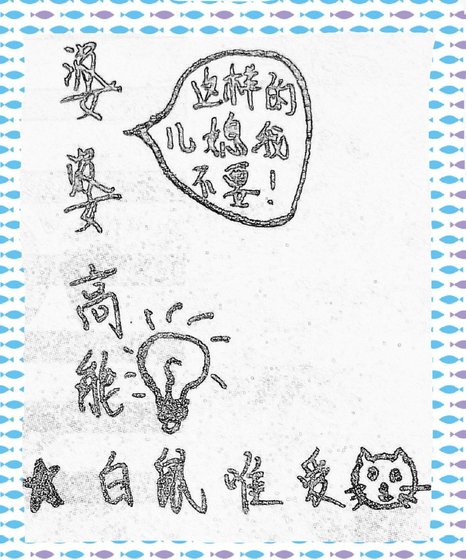 婆婆高能
这样的
儿媳我
不要！
白鼠唯爱